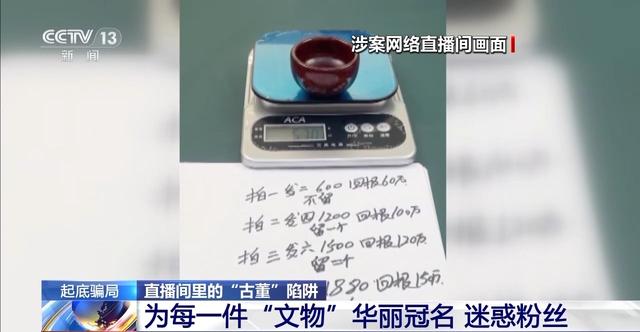 CCTV 13
新闻
涉案网络直播间画面
ACA
拍一发二600 回报60万
不留
拍二发四1200 回报100万
留一个
拍三发六1500 回报120万
留二个
1880 回报15万
起底骗局
直播间里的“古董”陷阱
为每一件“文物”华丽冠名 迷惑粉丝